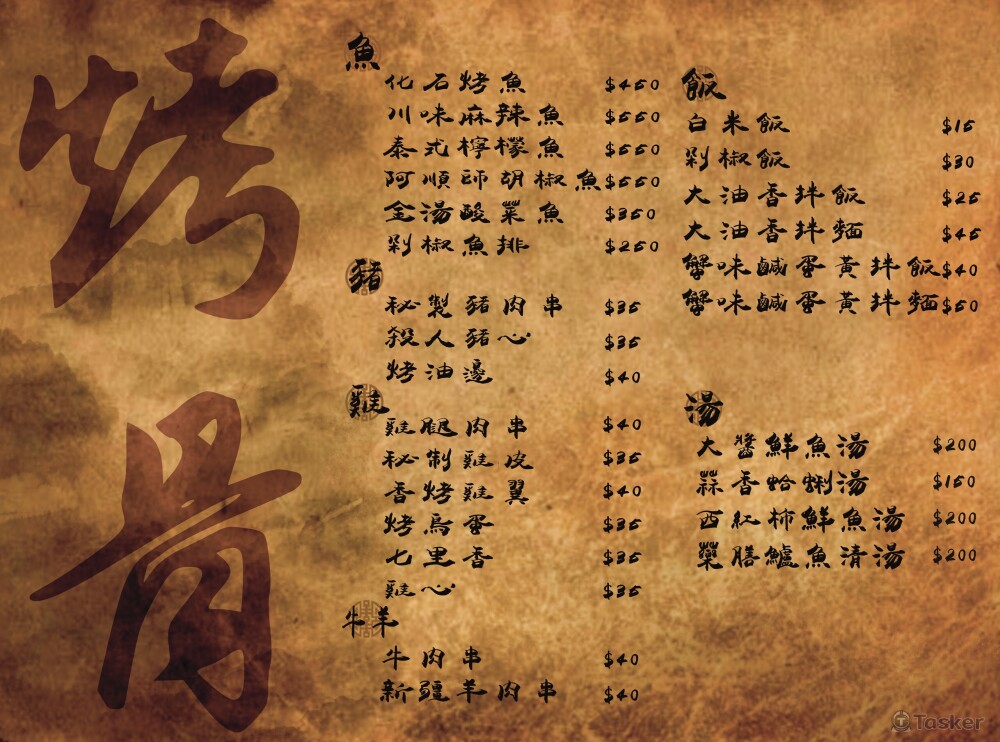 烤骨
魚
化石烤魚 $450
川味麻辣魚 $550
泰式檸檬魚 $550
阿順師胡椒魚 $550
金湯酸菜魚 $350
剁椒魚排 $250
豬
秘製豬肉串 $35
殺人豬心 $35
烤油邊 $40
雞
雞腿肉串 $40
秘制雞皮 $35
香烤雞翼 $40
烤鳥蛋 $35
七里香 $35
雞心 $35
牛羊
牛肉串 $40
新疆羊肉串 $40
飯
白米飯 $15
剁椒飯 $30
大油香拌飯 $25
大油香拌麵 $45
蟹味鹹蛋黃拌飯 $40
蟹味鹹蛋黃拌麵 $50
湯
大醬鮮魚湯 $200
蒜香蛤蜊湯 $150
西紅柿鮮魚湯 $200
藥膳鱸魚清湯 $200
Tasker